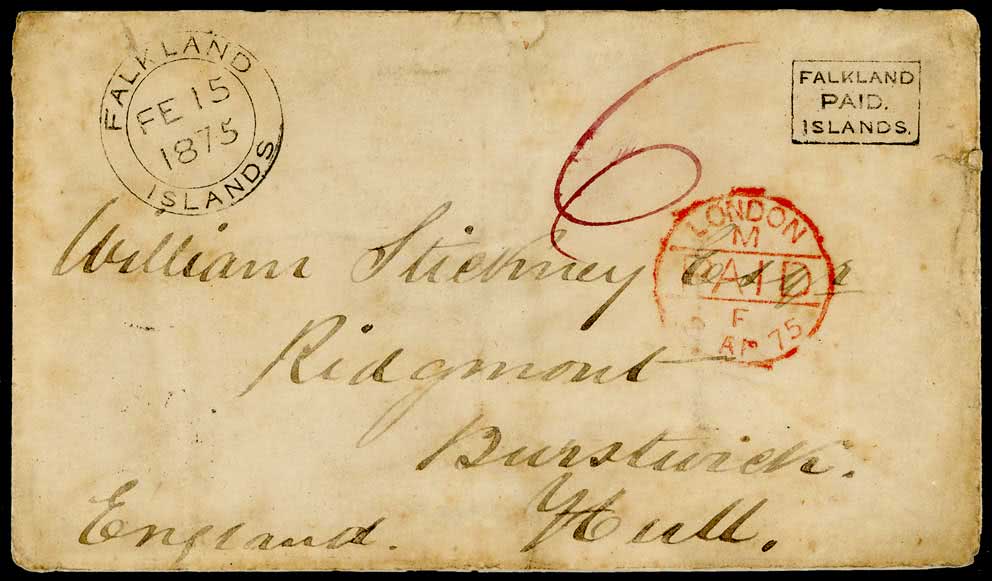 FALKLAND
FE 15
1875
ISLANDS
6
FALKLAND
PAID.
ISLANDS.
LONDON
M
PAID
F
AP 75
William Stickney Esqr
Ridgmont
Burstwick.
Hull.
England.